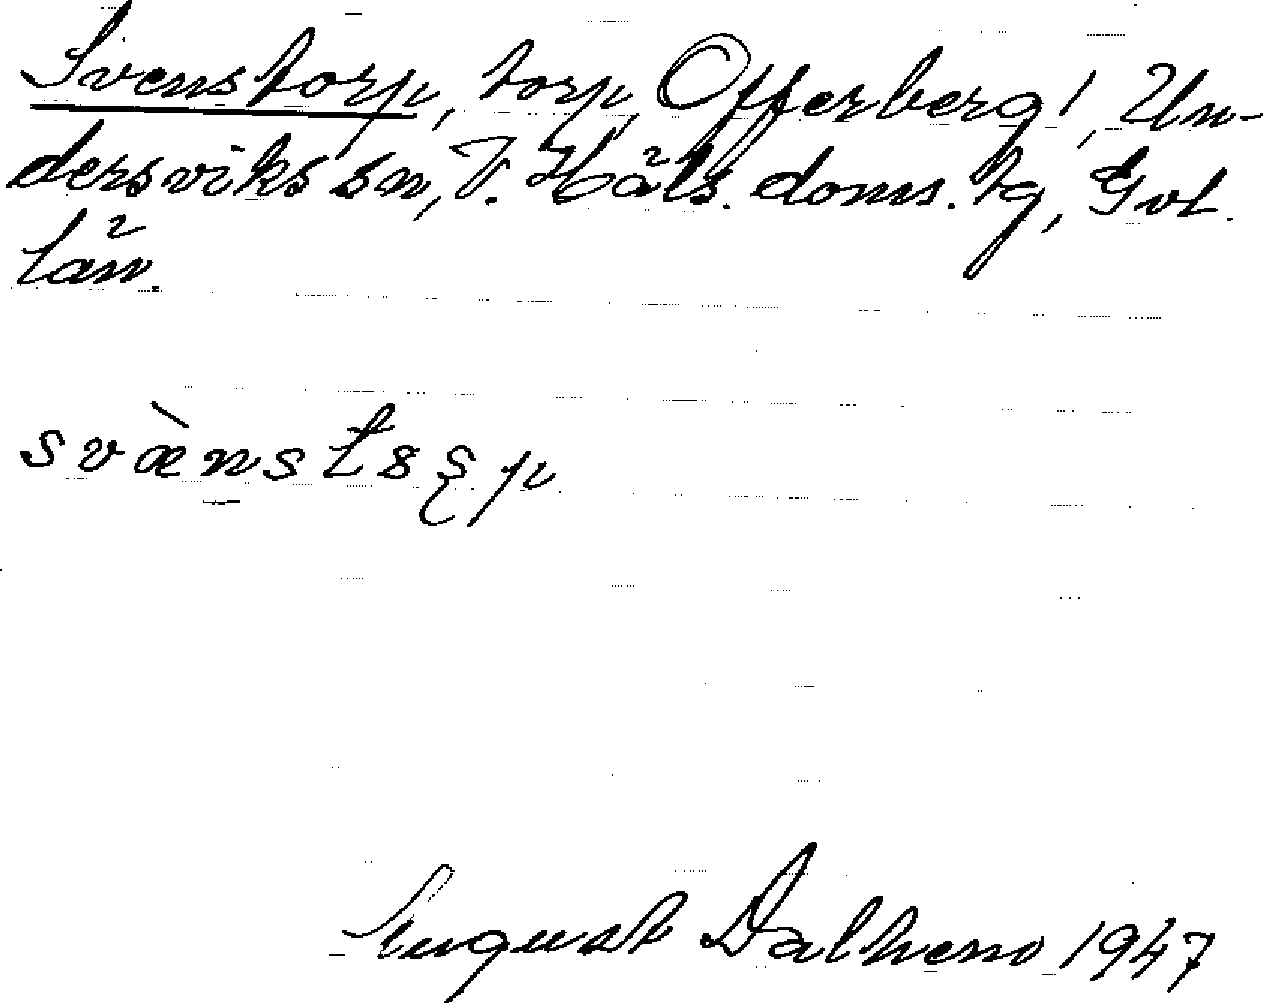 Svenstorp, torp, Offerberg 1, Un-
dersviks sn, V. Häls. doms. tg, Gvl.
län.
svànstsp
August Dalheno 1947